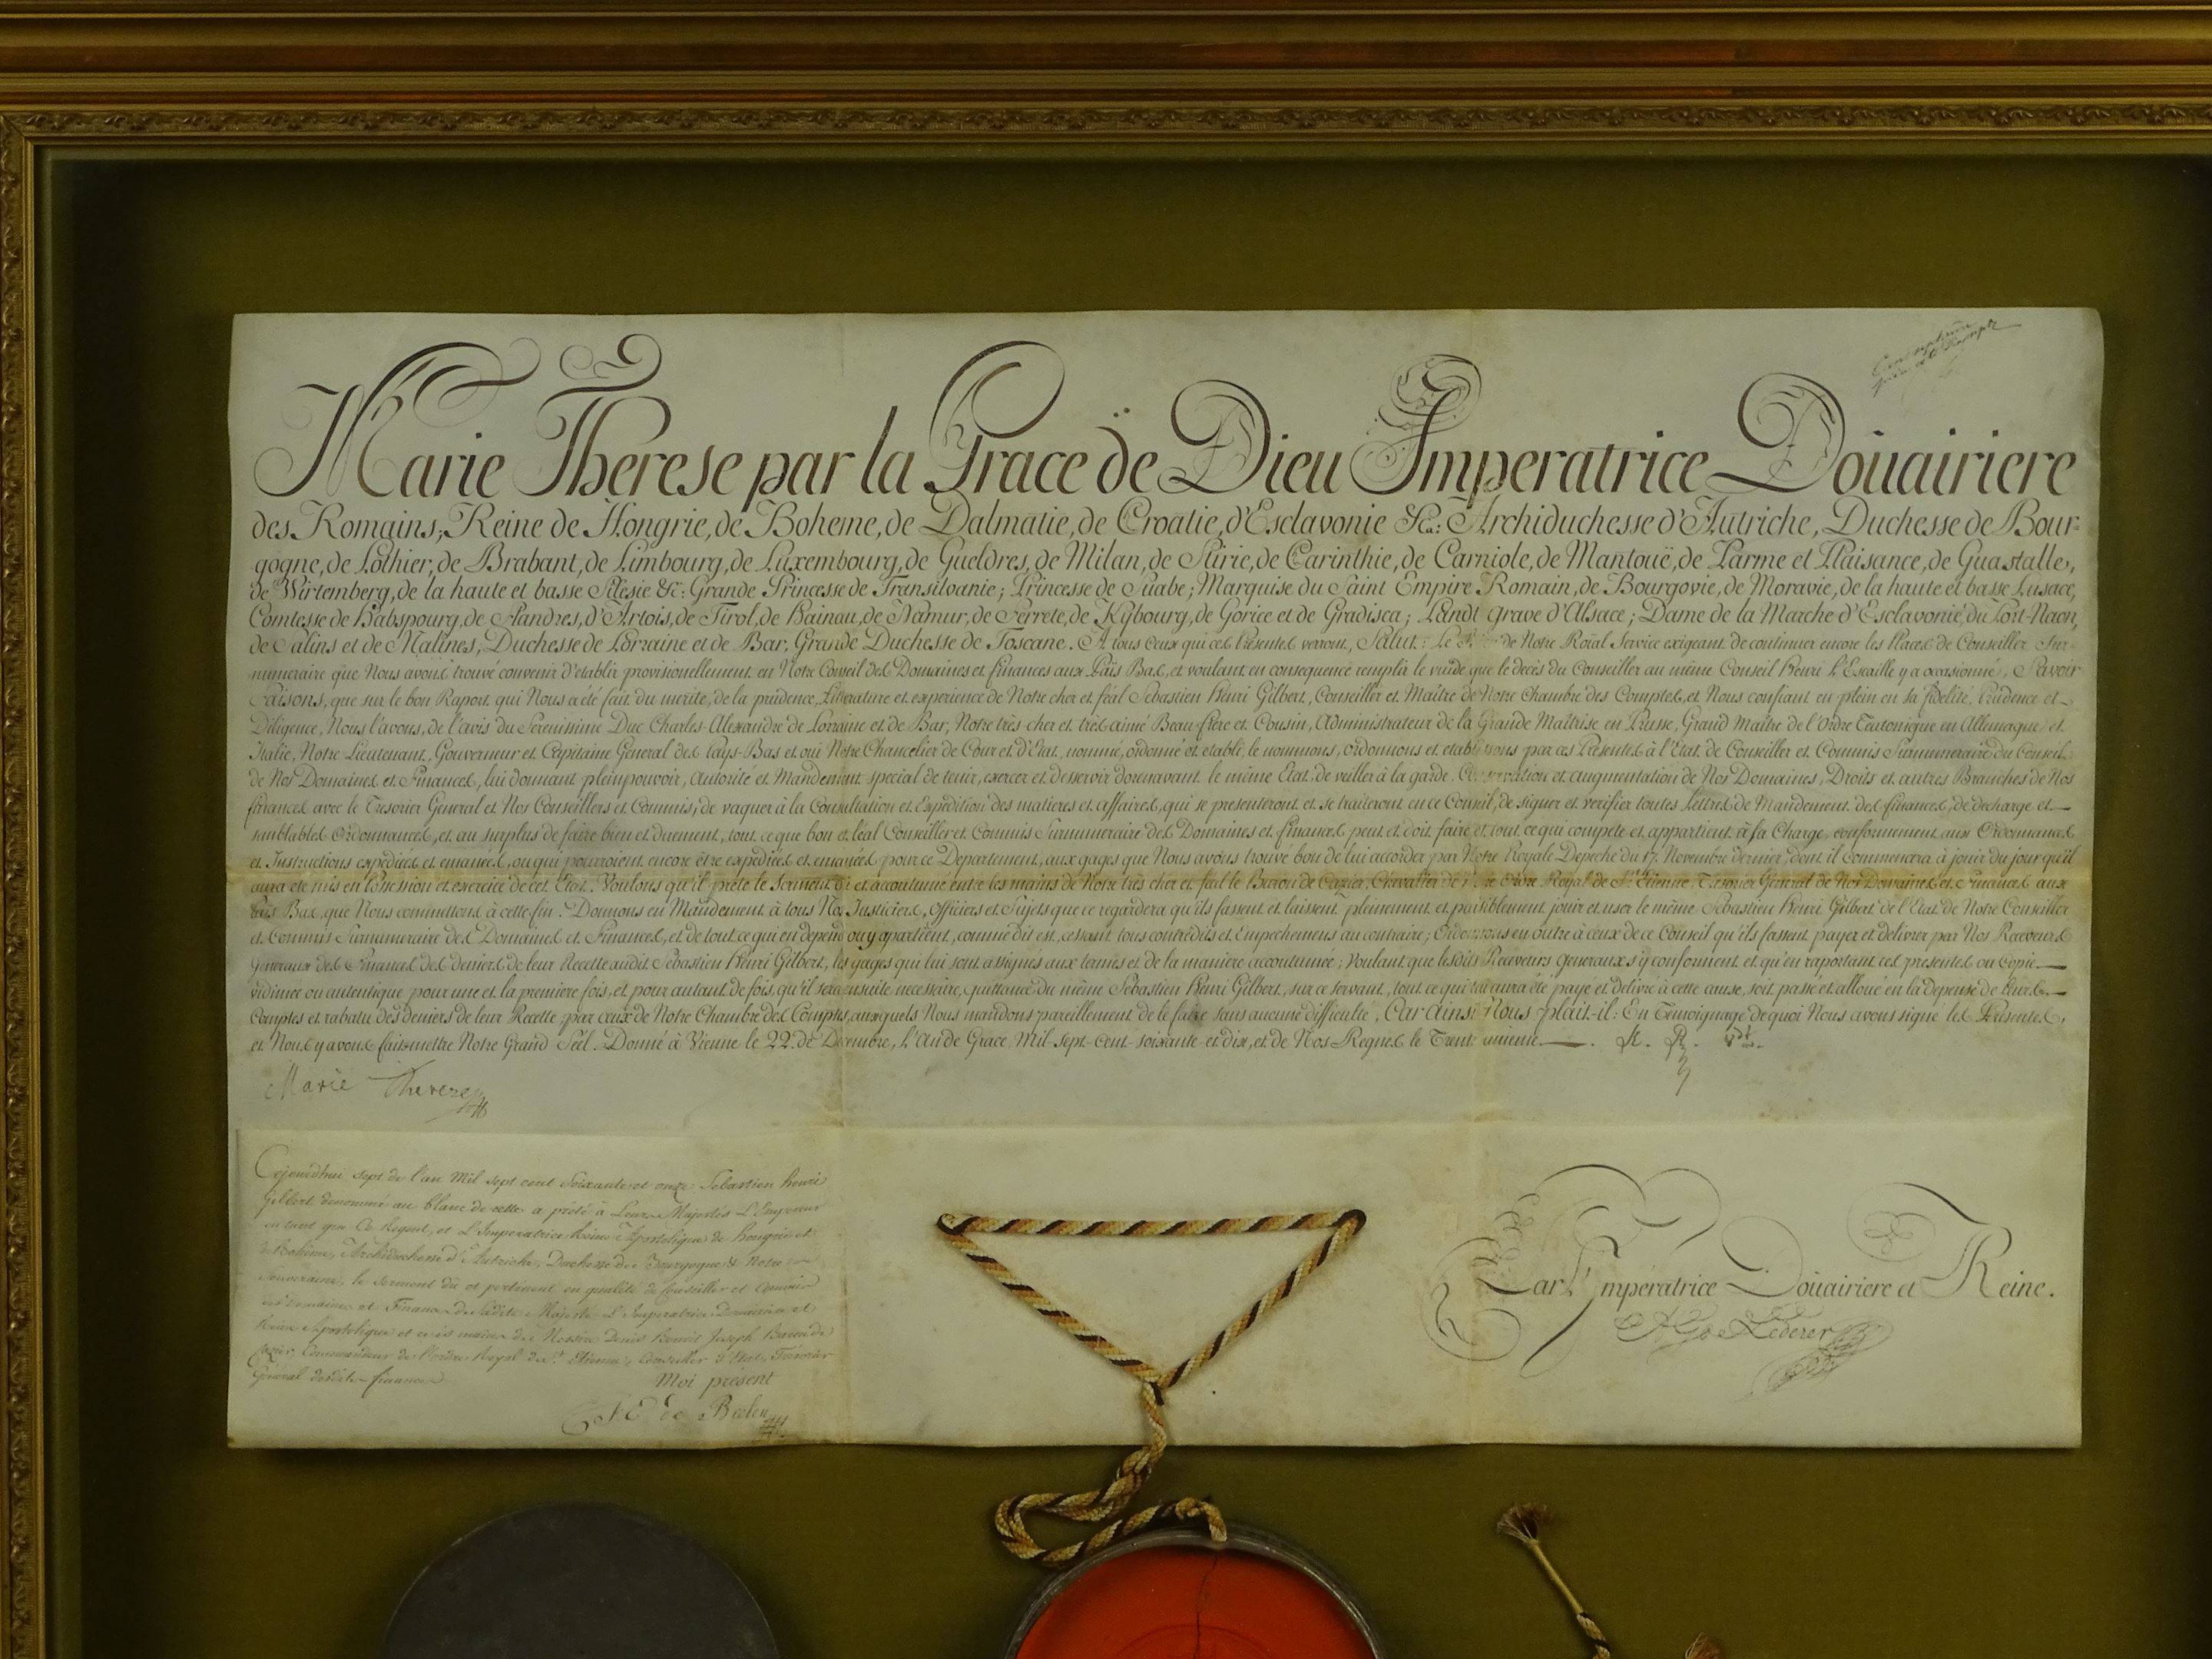 Marie Therese par la Grace de Dieu Imperatrice Doüairiere
des Romains, Reine de Hongrie, de Boheme, de Dalmatie, de Croatie, d'Esclavonie &ca: Archiduchesse d'Autriche, Duchesse de Bour-
gogne, de Lothier, de Brabant, de Limbourg, de Luxembourg, de Gueldres, de Milan, de Stirie, de Carinthie, de Carniole, de Mantouë, de Parme et Plaisance, de Guastalle,
de Wirtemberg, de la haute et basse Silesie &c: Grande Princesse de Transilvanie; Princesse de Suabe; Marquise du Saint Empire Romain, de Bourgovie, de Moravie, de la haute et basse Lusace,
Comtesse de Habspourg, de Flandres, d'Artois, de Tirol, de Hainau, de Namur, de Ferrete, de Kÿbourg, de Gorice et de Gradisca; Landtgrave d'Alsace; Dame de la Marche d'Esclavonie, du Port-Naon,
de Salins et de Malines, Duchesse de Lorraine et de Bar, Grande Duchesse de Toscane. A tous ceux qui ces Presentes verront, Salut: Le de Notre Roïal Service exigeant de continuer encore les Places de Conseiller Sur-
numeraire que Nous avons trouvé convenir d'etablir provisionellement en Notre Conseil des Domaines et Finances aux Païs Bas, et voulant en consequence remplir le vuide que le decès du Conseiller au même Conseil Henri L'Escaille y a occasionné, Savoir
Faisons, que sur le bon Raport qui Nous a été fait du merite, de la prudence, Litterature et experience de Notre cher et féal Sebastien Henri Gilbert, Conseiller et Maître de Notre Chambre des Comptes, et Nous confiant en plein en sa fidelité, Prudence et
Diligence, Nous l'avons, de l'avis du Serenissime Duc Charles Alexandre de Lorraine et de Bar, Notre très cher et très aimé Beau-frere et Cousin, Administrateur de la Grande Maîtrise en Prusse, Grand Maître de l'Ordre Teutonique en Allemagne et
Italie, Notre Lieutenant, Gouverneur et Capitaine General des Pays-Bas et oui Notre Chancelier de Cour et d'Etat, nommé, ordonné et etabli, le nommons, ordonnons et etablissons par ces Presentes à l'Etat de Conseiller et Commis Surnumeraire du Conseil
de Nos Domaines et Finances, lui donnant pleinpouvoir, Autorité et Mandement special de tenir, exercer et desservir dorenavant le même Etat, de veiller à la garde, Conservation et augmentation de Nos Domaines, Droits et autres Branches de Nos
finances avec le Tresorier General et Nos Conseillers et Commis, de vaquer à la Consultation et Expedition des matieres et affaires, qui se presenteront et se traiteront en ce Conseil, de signer et verifier toutes Lettres de Mandement des finances, de decharge et
semblables Ordonnances, et au surplus de faire bien et duement, tout ce que bon et léal Conseiller et Commis Surnumeraire des Domaines et finances peut et doit faire et tout ce qui compete et appartient à sa Charge, conformement aux Ordonnances
et Instructions expediées et emanées, ou qui pourroient encore être expediées et emanées pour ce Departement, aux gages que Nous avons trouvé bon de lui accorder par Notre Royale Depeche du 17. Novembre dernier, dont il commencera à jouir du jour qu'il
aura été mis en Possession et exercice de cet Etat. Voulons qu'il prête le Serment dû et accoutumé entre les mains de Notre très cher et féal le Baron de Cazier, Chevalier de Ordre Royal de St. Etienne, Tresorier General de Nos Domaines et Finances aux
Païs Bas, que Nous committons à cette fin. Donnons en Mandement à tous Nos Justiciers, Officiers et Sujets que ce regardera qu'ils fassent et laissent pleinement et paisiblement jouir et user le même Sebastien Henri Gilbert de l'Etat de Notre Conseiller
et Commis Surnumeraire des Domaines et Finances, et de tout ce qui en depend ou y apartient, comme dit est, cessant tous contredits et Empechemens au contraire; Ordonnons en outre à ceux de ce Conseil qu'ils fassent payer et delivrer par Nos Receveurs
Generaux des Finances des deniers de leur Recette audit Sebastien Henri Gilbert, les gages qui lui sont assignés aux termes et de la maniere accoutumée; Voulant que lesdits Receveurs generaux s'y conforment et qu'en raportant ces presentes ou Copie
vidimée ou autentique pour une et la premiere fois, et pour autant de fois, qu'il sera ensuite necessaire, quittance du même Sebastien Henri Gilbert, sur ce servant, tout ce qui lui aura été payé et delivré à cette cause, soit passé et alloué en la depense de leurs
Comptes et rabatu des deniers de leur Recette, par ceux de Notre Chambre des Comptes, auxquels Nous mandons pareillement de le faire sans aucune difficulté, Car ainsi Nous plait-il: En Témoignage de quoi Nous avons signé les Presentes,
et Nous y avons fait mettre Notre Grand Séel. Donné à Vienne le 22. de Decembre, l'An de Grace Mil-sept-cent-soixante et dix, et de Nos Regnes le Trent'unieme. K. R. vdt.
Marie Therese
Cejourd'hui sept de l'an Mil sept cent Soixante et onze Sebastien henri
Gilbert denommé au blanc de cette a prété à Leurs Majestés L'Empereur
en tant que Co Regent, et L'Imperatrice Reine Apostolique de hongrie et
de Bohême, Archiduchesse d'Autriche, Duchesse de Bourgogne & Notre
Souveraine, le serment dû et pertinent en qualité de Conseiller et Commis
des domaines et Finances de Sadite Majesté L'Imperatrice Douairiere et
Reine Apostolique et ce ès mains de Messire Denis Benoit Joseph Baron de
Cazier, Commandeur de l'ordre Royal de St. Etienne, Conseiller d'Etat, Trésorier
Général desdites finances
Moi présent
de Beelen
Par l'Impératrice Doüairiere et Reine.
A G de Lederer